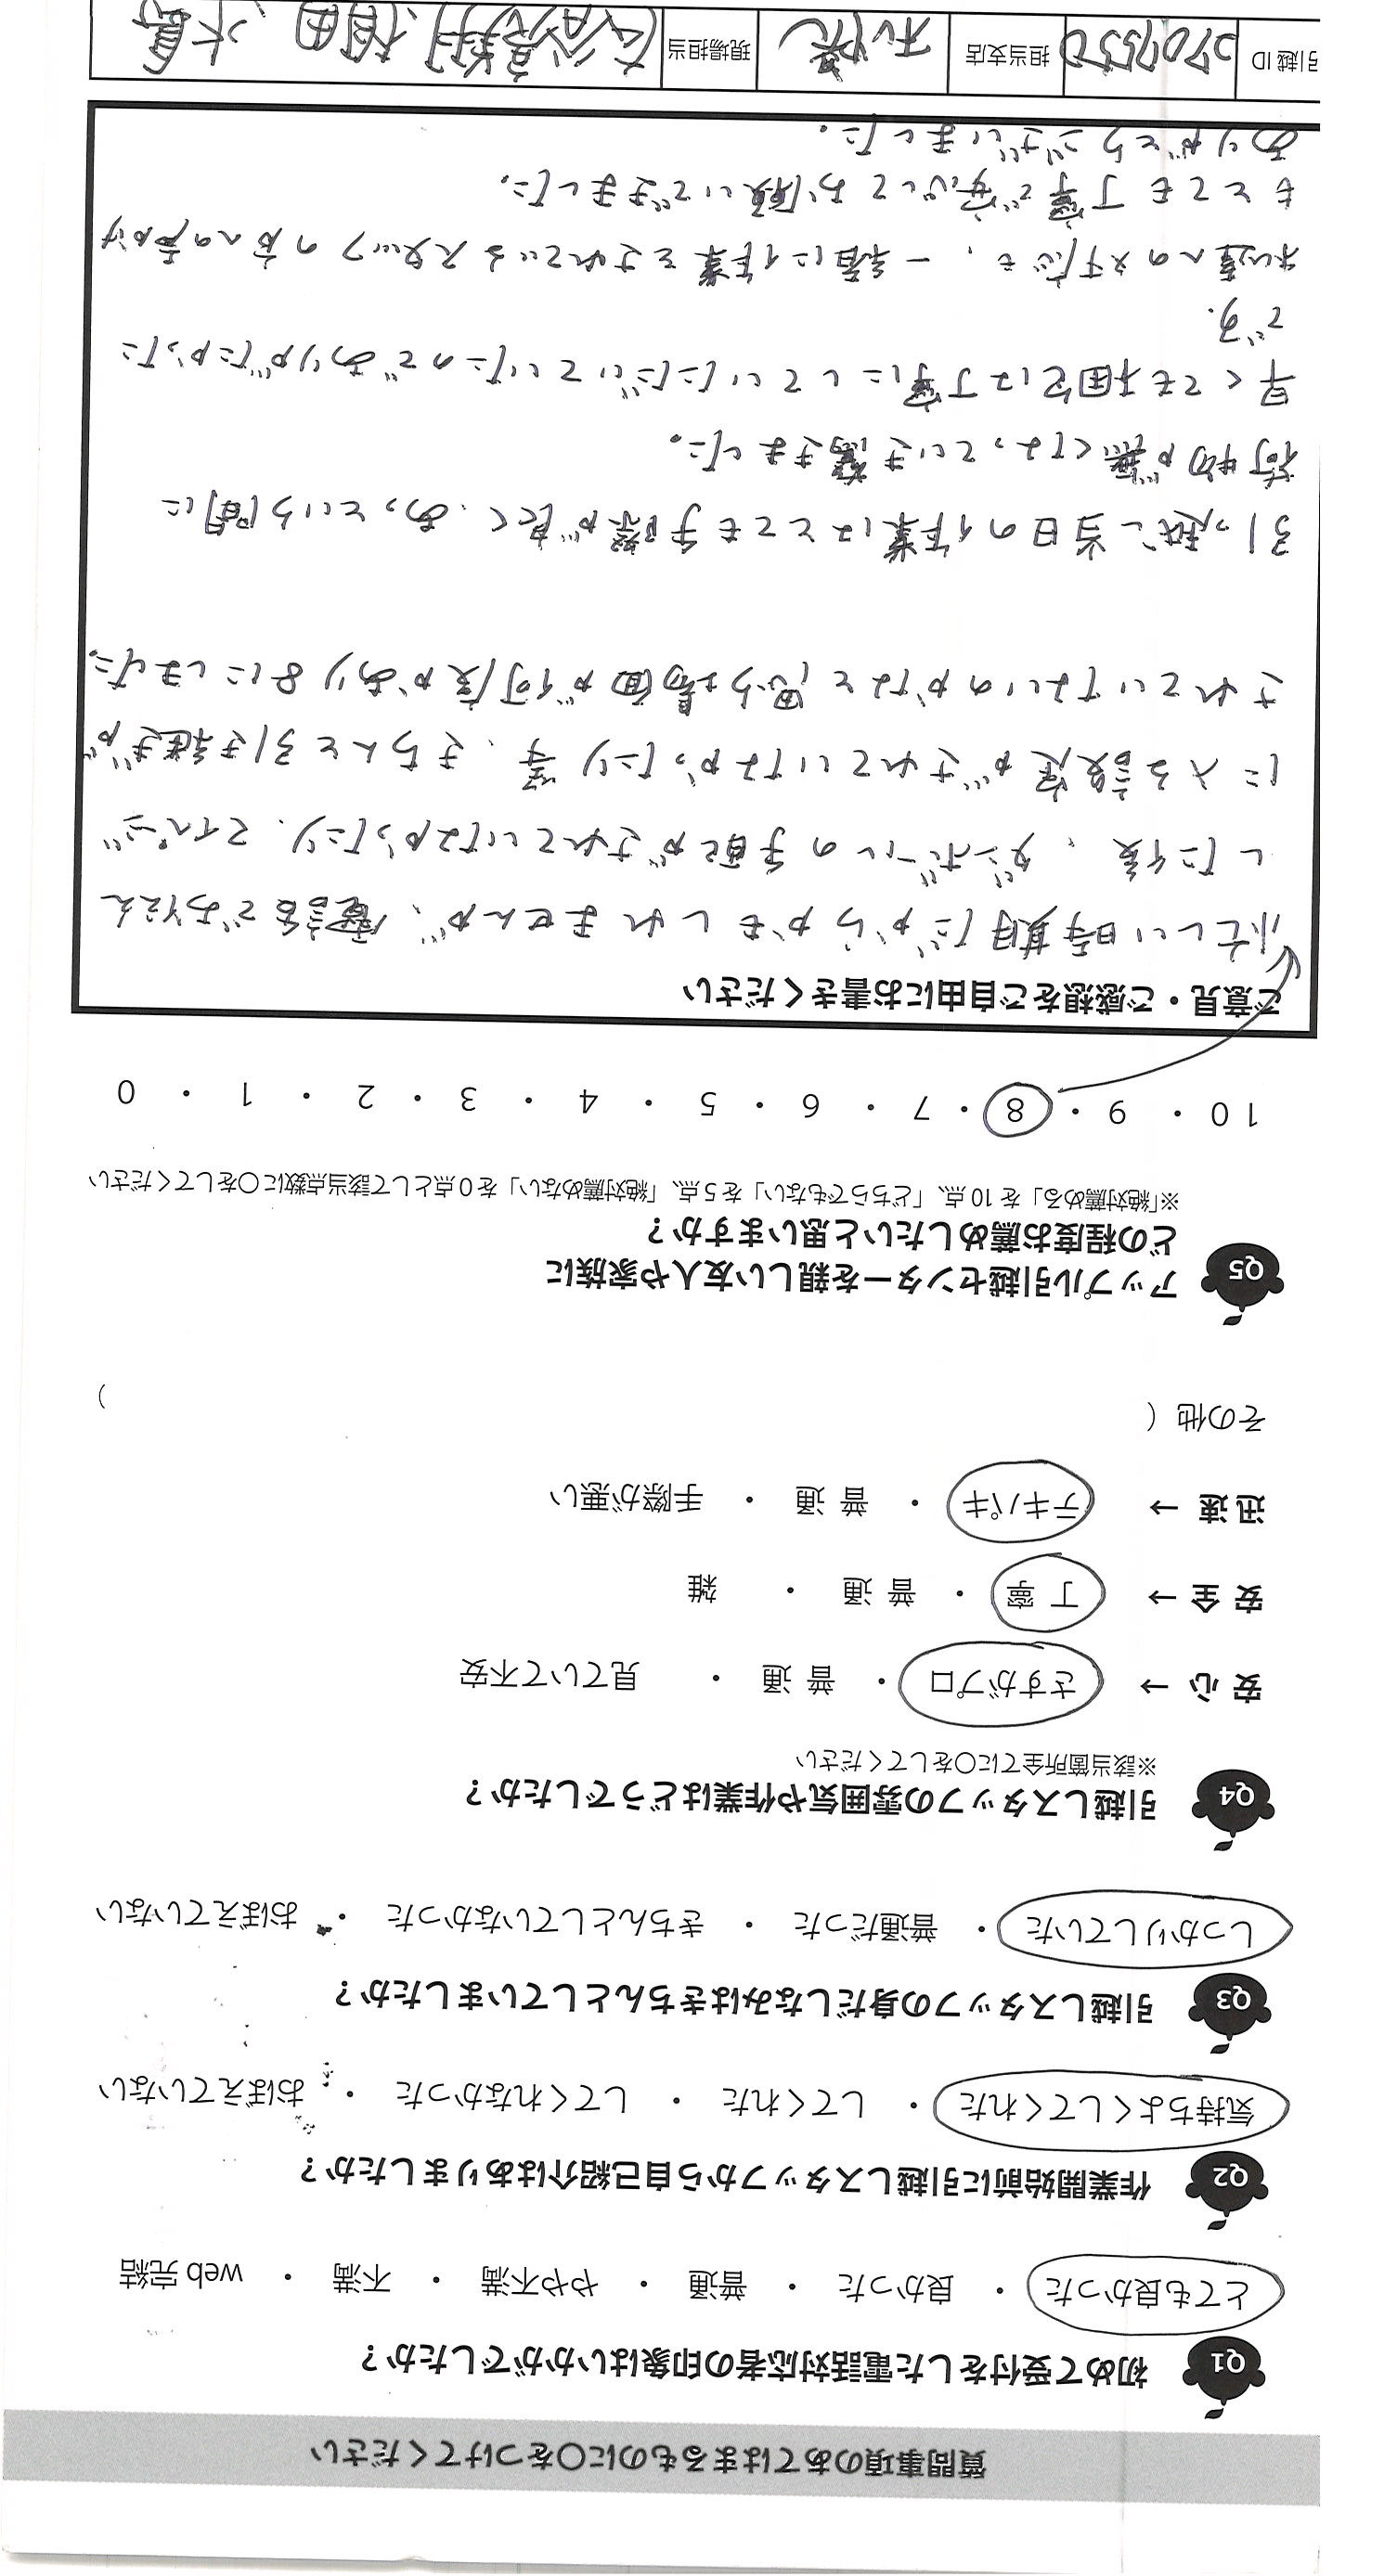 質問事項のあてはまるものに〇をつけてください
Q1 初めて受付をした電話対応者の印象はいかがでしたか？
とても良かった ・ 良かった ・ 普通 ・ やや不満 ・ 不満 ・ web 完結
Q2 作業開始前に引越しスタッフから自己紹介はありましたか？
気持ちよくしてくれた ・ してくれた ・ してくれなかった ・ おぼえていない
Q3 引越しスタッフの身だしなみはきちんとしていましたか？
しっかりしていた ・ 普通だった ・ きちんとしていなかった ・ おぼえていない
Q4 引越しスタッフの雰囲気や作業はどうでしたか？
※該当箇所全てに〇をしてください
安心 → さすがプロ ・ 普通 ・ 見ていて不安
安全 → 丁寧 ・ 普通 ・ 雑
迅速 → テキパキ ・ 普通 ・ 手際が悪い
その他（ ）
Q5 アップル引越センターを親しい友人や家族に
どの程度お薦めしたいと思いますか？
※「絶対薦める」を 10 点、「どちらでもない」を 5 点、「絶対薦めない」を 0 点として該当点数に〇をしてください
10 ・ 9 ・ 8 ・ 7 ・ 6 ・ 5 ・ 4 ・ 3 ・ 2 ・ 1 ・ 0
ご意見・ご感想をご自由にお書きください
忙しい時期だからかもしれませんが、電話でお伝え
した後、ダンボールの手配がされていなかったり、マイページ
に入る設定がされていなかったり等、きちんと引き継ぎが
されていないのかなと思う場面が何度かあり8にしました。
引っ越し当日の作業はとても手際が良く、あっという間に
荷物が無くなっていき驚きました。
早くても梱包は丁寧にしていただいていたのでありがたかった
です。
私達への対応も、一緒に作業をされているスタッフの方への声かけ
もとても丁寧で安心してお願いできました。
ありがとうございました。
引越 ID 2709550 担当支店 札幌 現場担当 相田、水島